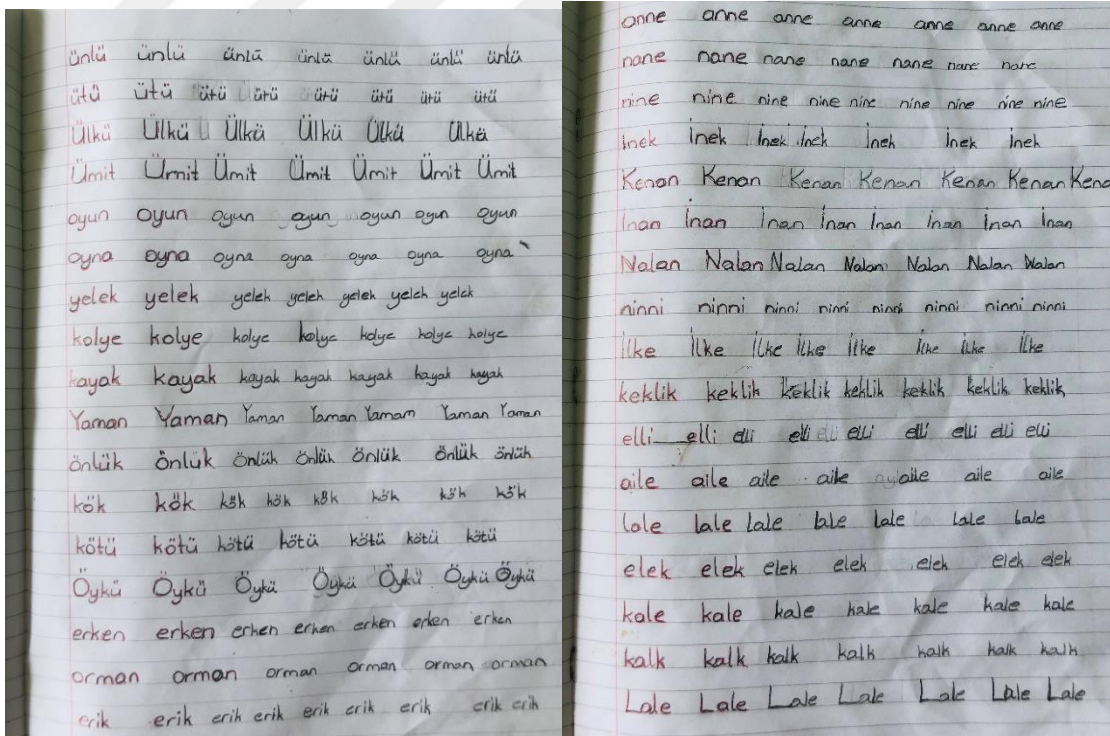 ünlü ünlü ünlü ünlü ünlü ünlü ünlü
ütü ütü ütü ütü ütü ütü ütü ütü
Ülkü Ülkü Ülkü Ülkü Ülkü Ülkü
Ümit Ümit Ümit Ümit Ümit Ümit Ümit
oyun oyun oyun oyun oyun oyun oyun
oyna oyna oyna oyna oyna oyna oyna
yelek yelek yelek yelek yelek yelek yelek
kolye kolye kolye kolye kolye kolye kolye
kayak kayak kayak kayak kayak kayak kayak
Yaman Yaman Yaman Yaman Yamam Yaman Yaman
önlük önlük önlük önlük önlük önlük önlük
kök kök kök kök kök kök kök kök
kötü kötü kötü kötü kötü kötü kötü
Öykü Öykü Öykü Öykü Öykü Öykü Öykü
erken erken erken erken erken erken erken
orman orman orman orman orman orman
erik erik erik erik erik erik erik erik erik
anne anne anne anne anne anne anne
nane nane nane nane nane nane nane
nine nine nine nine nine nine nine nine nine
İnek İnek İnek İnek İnek İnek İnek
Kenan Kenan Kenan Kenan Kenan Kenan Kena
İnan İnan İnan İnan İnan İnan İnan İnan
Nalan Nalan Nalan Nalan Nalan Nalan Nalan
ninni ninni ninni ninni ninni ninni ninni ninni
İlke İlke İlke İlke İlke İlke İlke İlke
keklik keklik keklik keklik keklik keklik keklik
elli elli elli elli elli elli elli elli elli elli
aile aile aile aile aile aile aile
Lale lale Lale Lale Lale Lale Lale
elek elek elek elek elek elek elek
kale kale kale kale kale kale kale
kalk kalk kalk kalk kalk kalk kalk
Lale Lale Lale Lale Lale Lale Lale